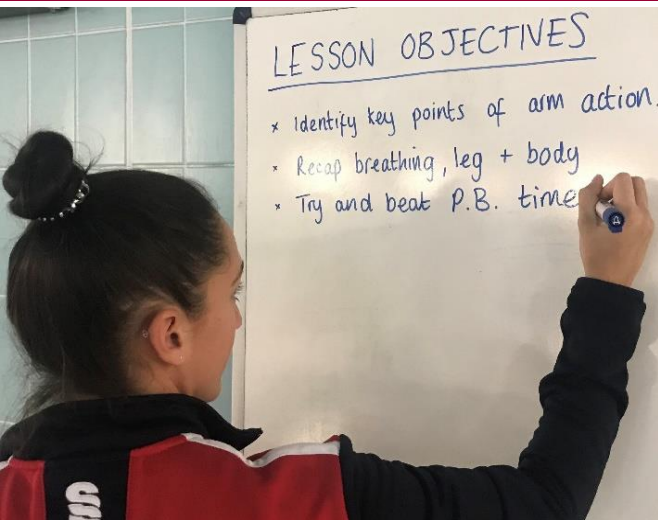 LESSON OBJECTIVES
× Identify key points of arm action.
× Recap breathing, leg + body
× Try and beat P.B. time